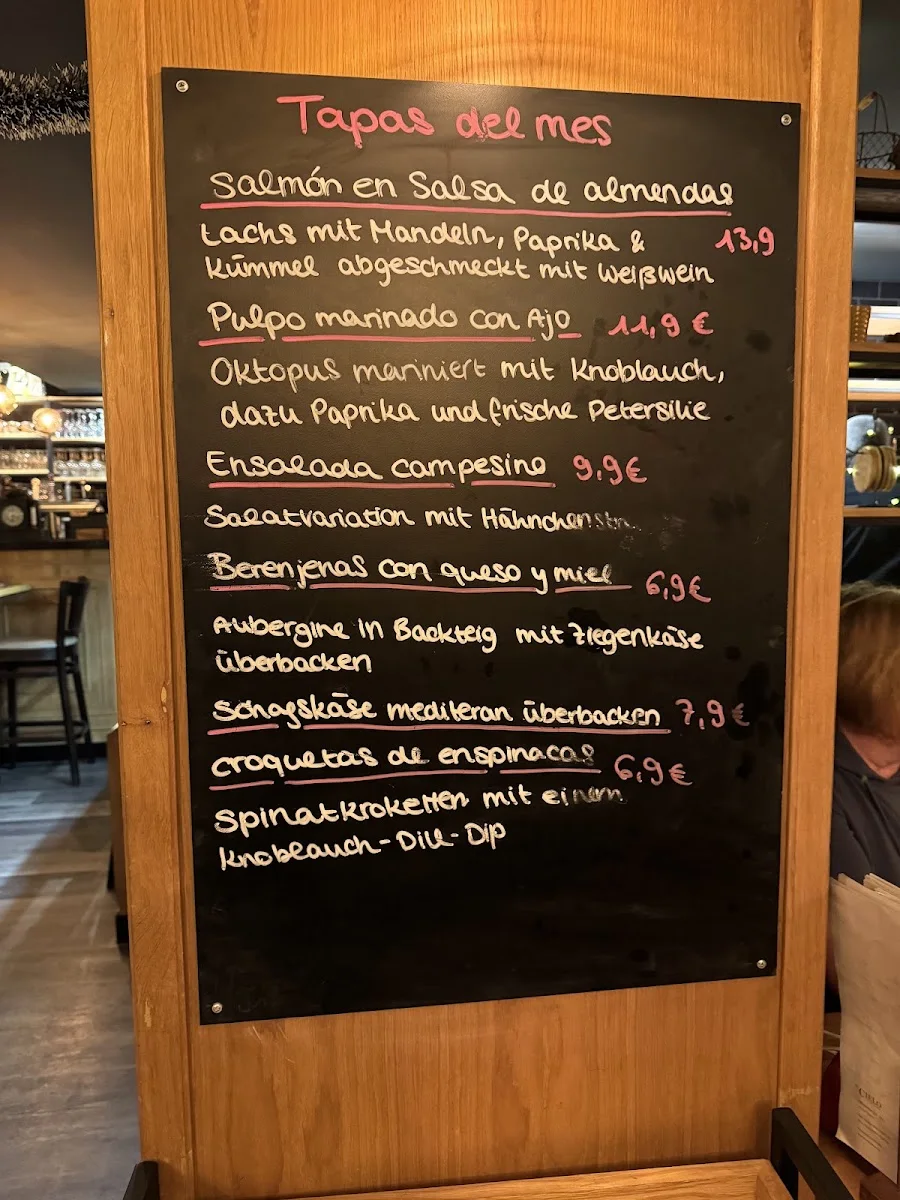 Tapas del mes
Salmón en Salsa de almendas
Lachs mit Mandeln, Paprika & 13,9
Kümmel abgeschmeckt mit Weißwein
Pulpo marinado con Ajo 11,9 €
Oktopus mariniert mit Knoblauch,
dazu Paprika und frische Petersilie
Ensalada campesino 9,9€
Salatvariation mit
Berenjenas con queso y miel 6,9€
Aubergine in Backteig mit Ziegenkäse
überbacken
Schagskäse mediteran überbacken 7,9€
croquetas de enspinacas 6,9€
Spinatkroketten mit einem
Knoblauch-Dill-Dip
CIELO